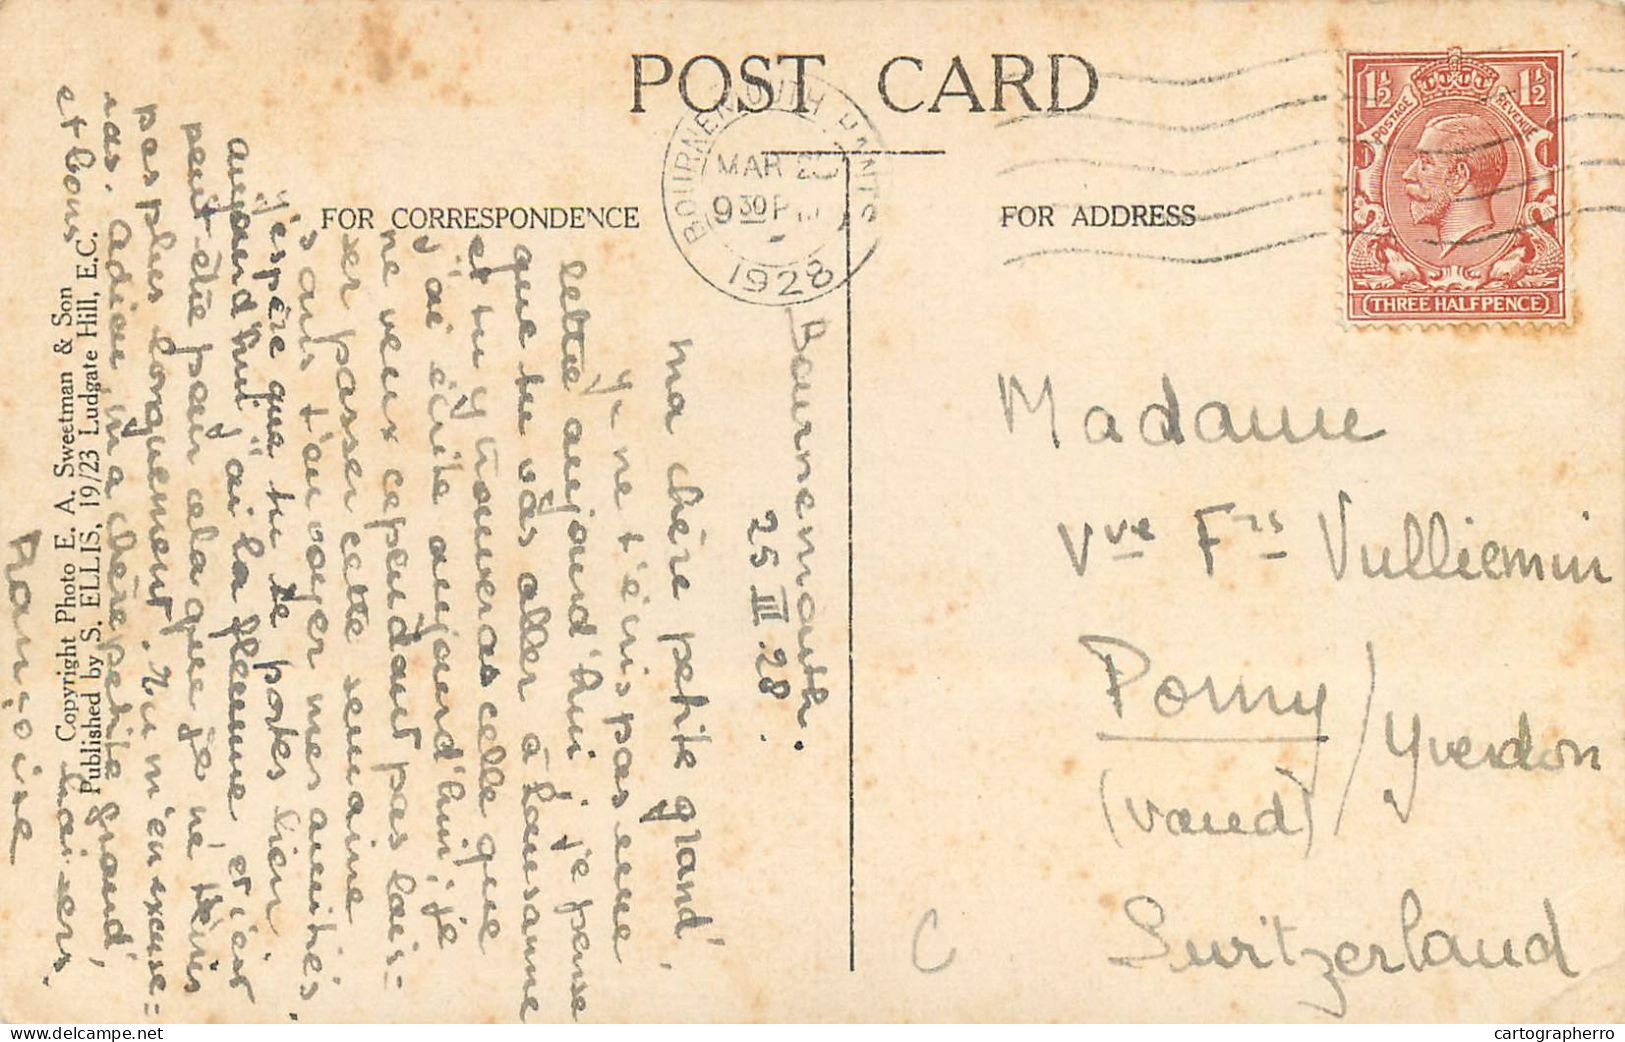 POST CARD
FOR CORRESPONDENCE
FOR ADDRESS
BOURNEMOUTH HANTS
MAR 2
9 30 P
1928
1½ 1½
POSTAGE REVENUE
THREE HALFPENCE
Copyright Photo E. A. Sweetman & Son
Published by S. ELLIS, 19/23 Ludgate Hill, E.C.
Bournemouth.
25 III 28.
Ma chère petite grand',
Je ne t'écris pas une
lettre aujourd'hui; je pense
que tu vas aller à Lausanne
et tu y trouveras celle que
j'ai écrite aujourd'hui; je
ne veux cependant pas lais-
ser passer cette semaine
sans t'envoyer mes amitiés.
J'espère que tu te portes bien.
aujourd'hui j'ai la flemme et c'est
peut-être pour cela que je ne t'écris
pas plus longuement. Tu m'en excuse=
ras. Adieu, ma chère petite grand',
et bons baisers.
Françoise
Madame
Vve Frs Vulliemin
Pomy / Yverdon
(Vaud)
Switzerland
C
cartographerro